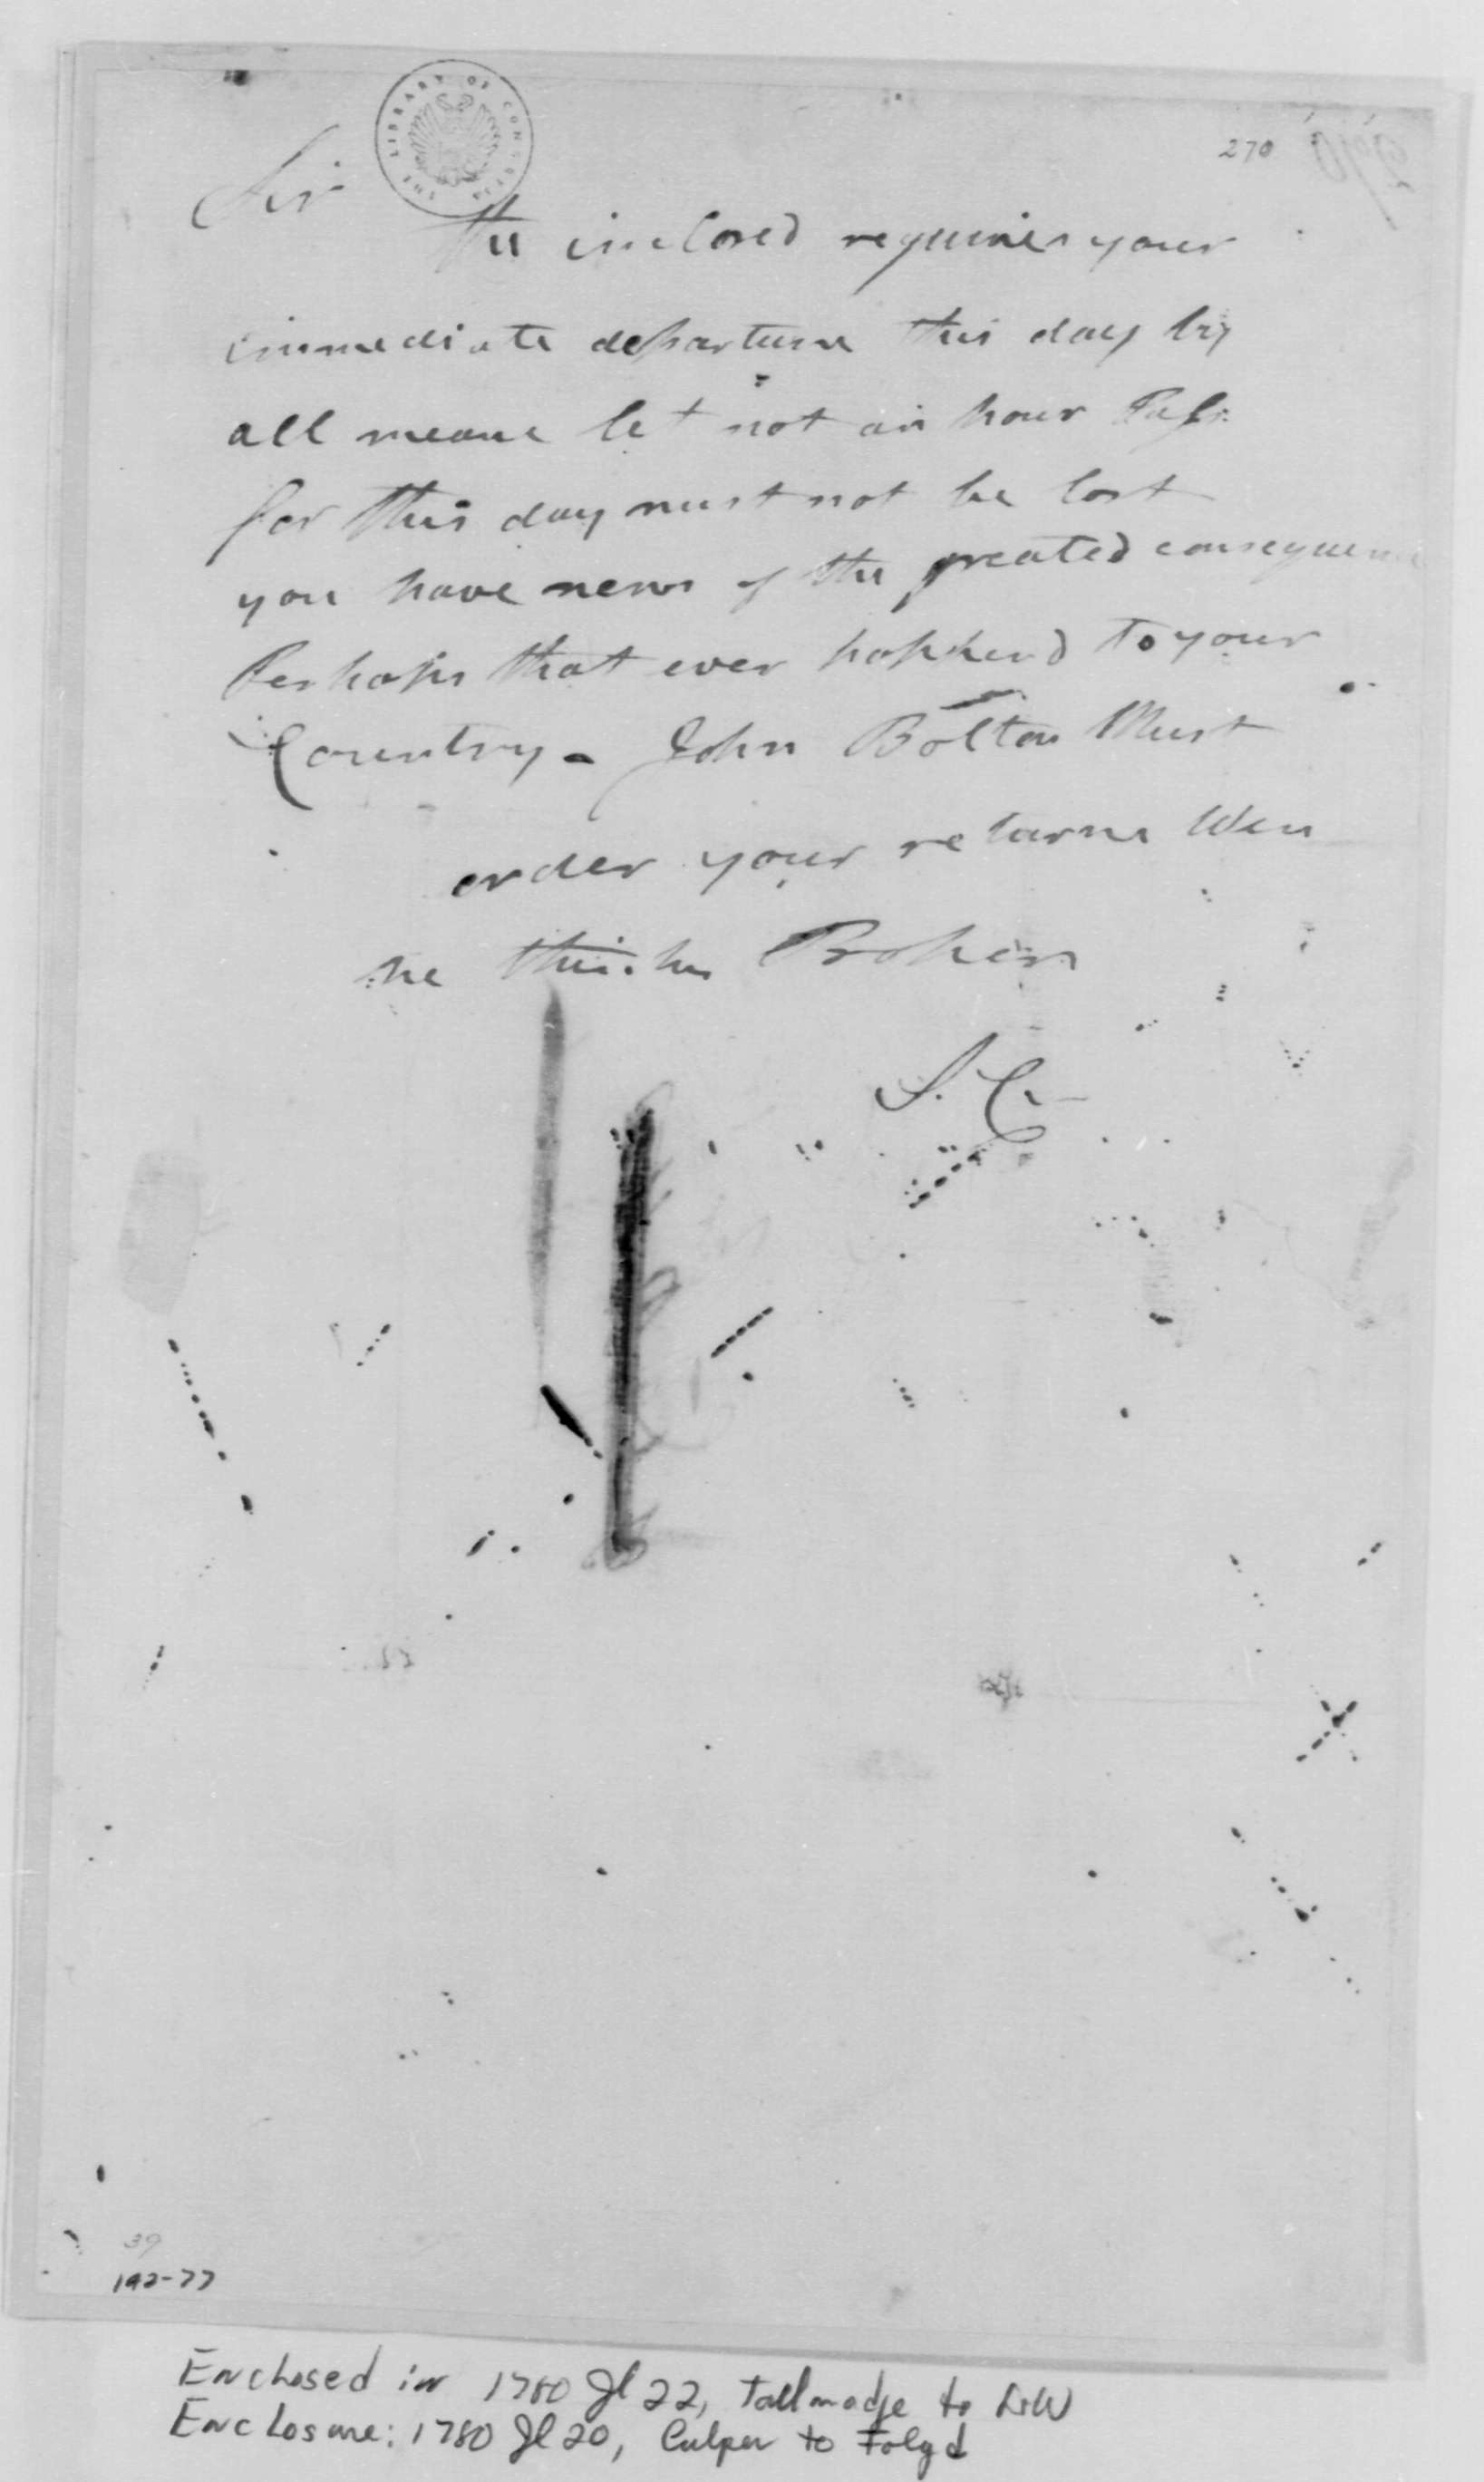 THE LIBRARY OF CONGRESS
270
Sir
The inclosed requires your
immediate departure this day by
all means let not an hour Pass:
for this day must not be lost
you have news of the greated consequence
Perhaps that ever happend to your
Country - John Bolton Must
order your returne Wen
he thinks Proper
S. C.
39
192-77
Enclosed in 1780 Jl 22, Tallmadge to GW
Enclosure: 1780 Jl 20, Culper to Folyd